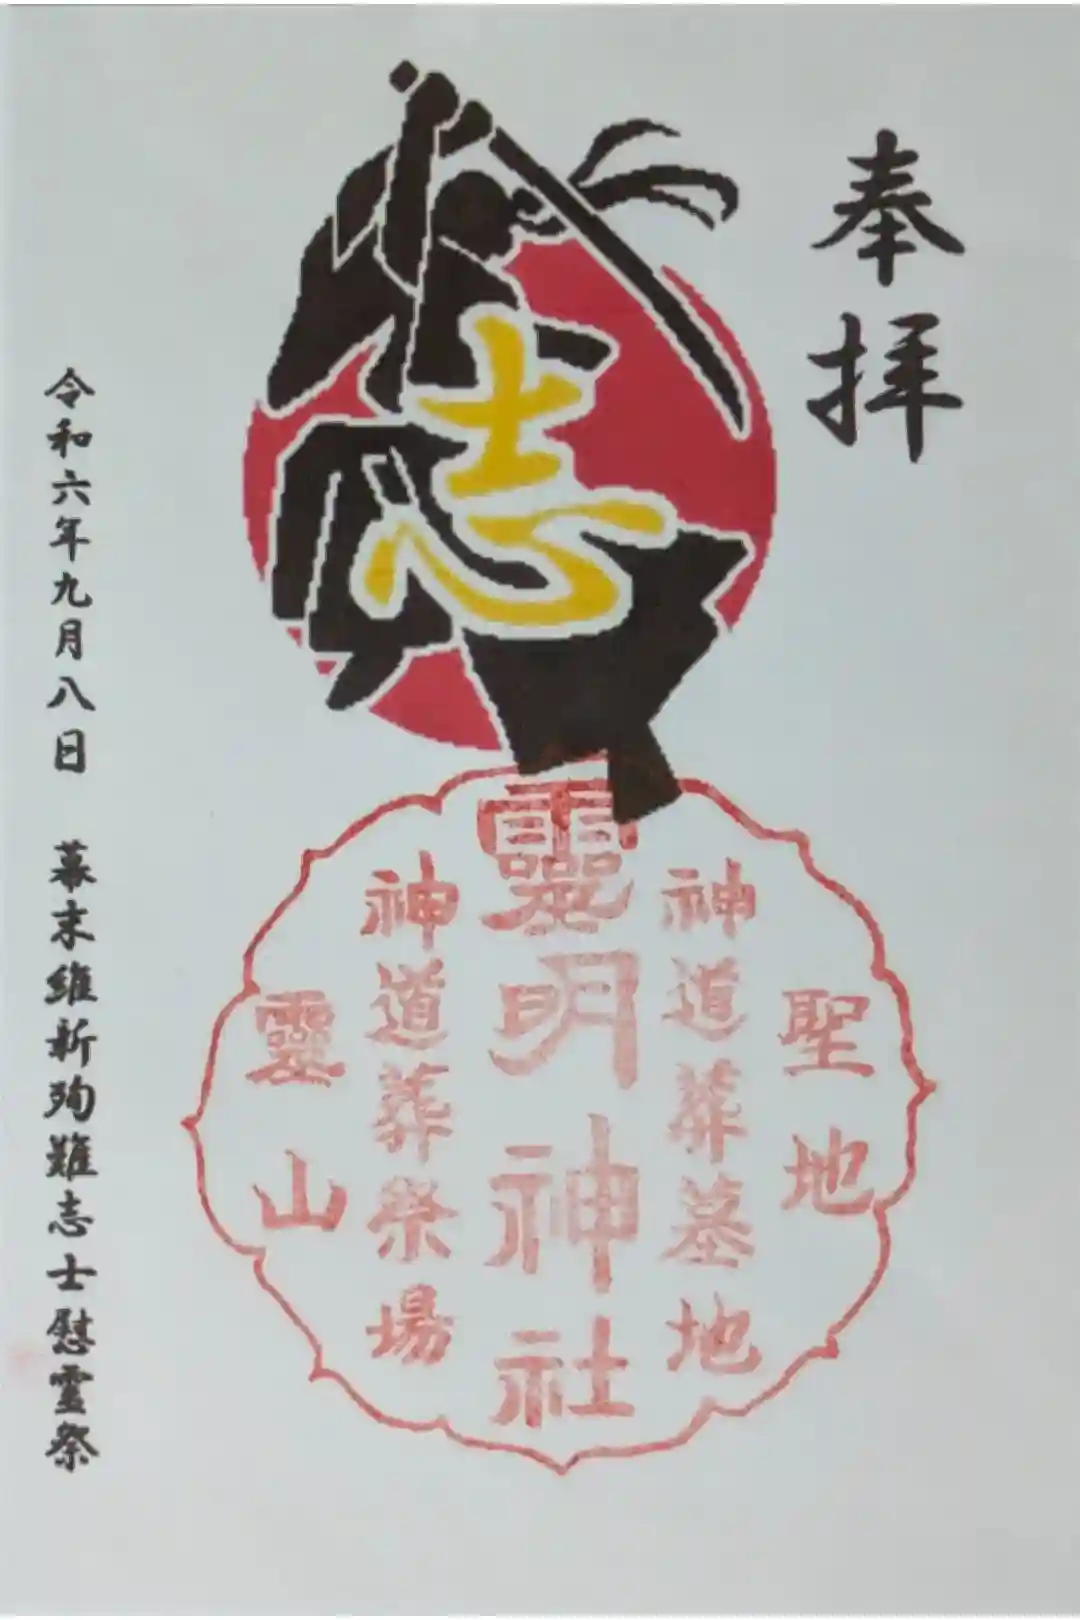 奉拝
志
聖地
神道葬墓地
靈明神社
神道葬祭場
靈山
令和六年九月八日 幕末維新殉難志士慰霊祭